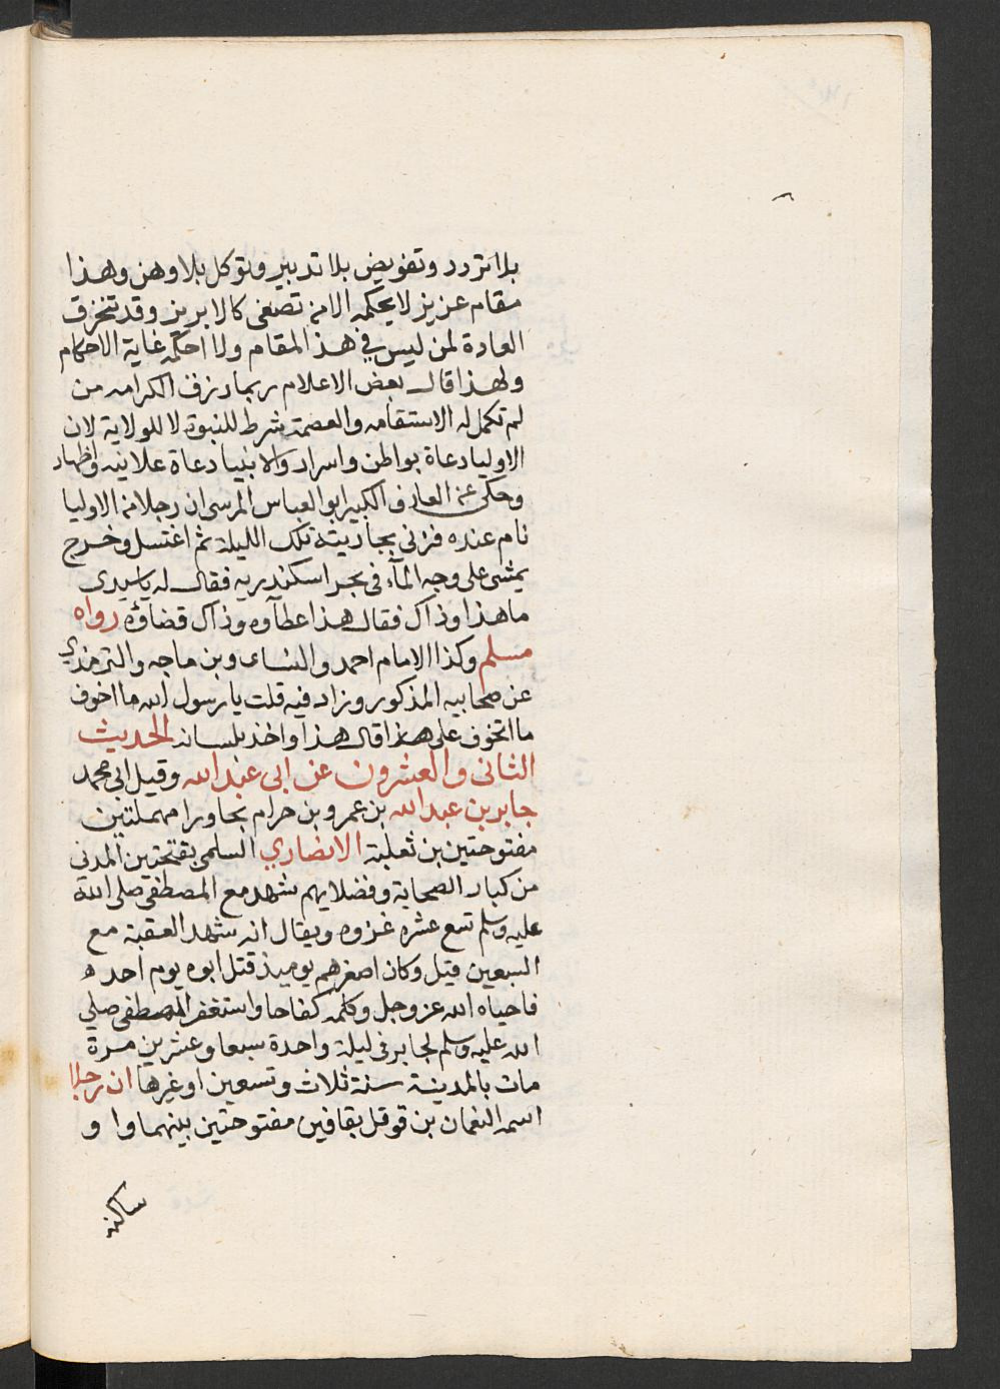 بلا تردد وتفويض بلا تدبير وتوكل بلا وهن وهذا
مقام عزيز لا يحكمه الا من تصفى كالابريز وقد تنخرق
العادة لمن ليس في هذا المقام ولا احكمه غاية الاحكام
ولهذا قال بعض الاعلام ربما رزق الكرامه من
لم تكمل له الاستقامه والعصمة شرط للنبوة لا للولاية لان
الاوليا دعاة بواطن واسرار والانبيا دعاة علانيه واظهار
وحكى عن العارف الكبير ابو العباس المرسى ان رجلا من الاوليا
نام عنده فزنى بجاريته تلك الليلة ثم اغتسل وخرج
يمشى على وجه المآء فى بحر اسكندريه فقال له يا سيدى
ما هذا وذاك فقال هذا عطآوه وذاك قضاؤه رواه
مسلم وكذا الامام احمد والنساى وبن ماجه والترمذي
عن صحابيه المذكور وزاد فيه قلت يا رسول الله ما اخوف
ما اتخوف على هذا قال هذا واخذ بلسانه الحديث
الثانى والعشرون عن ابى عبد الله وقيل ابى محمد
جابر بن عبد الله بن عمرو بن حرام بحا ورا مهملتين
مفتوحتين بن ثعلبة الانصاري السلمى بفتحتين المدنى
من كبار الصحابة وفضلايهم شهد مع المصطفى صلى الله
عليه وسلم تسع عشره غزوه ويقال انه شهد العقبة مع
السبعين قيل وكان اصغرهم يوميذ قتل ابوه يوم احد ه
فاحياه الله عز وجل وكلمه كفاحا واستغفر المصطفى صلي
الله عليه وسلم لجابر فى ليلة واحدة سبعا وعشرين مرة
مات بالمدينة سنة ثلاث وتسعين او غيرها ان رجلا
اسمه النعمان بن قوقل بقافين مفتوحتين بينهما وا و
ساكنه